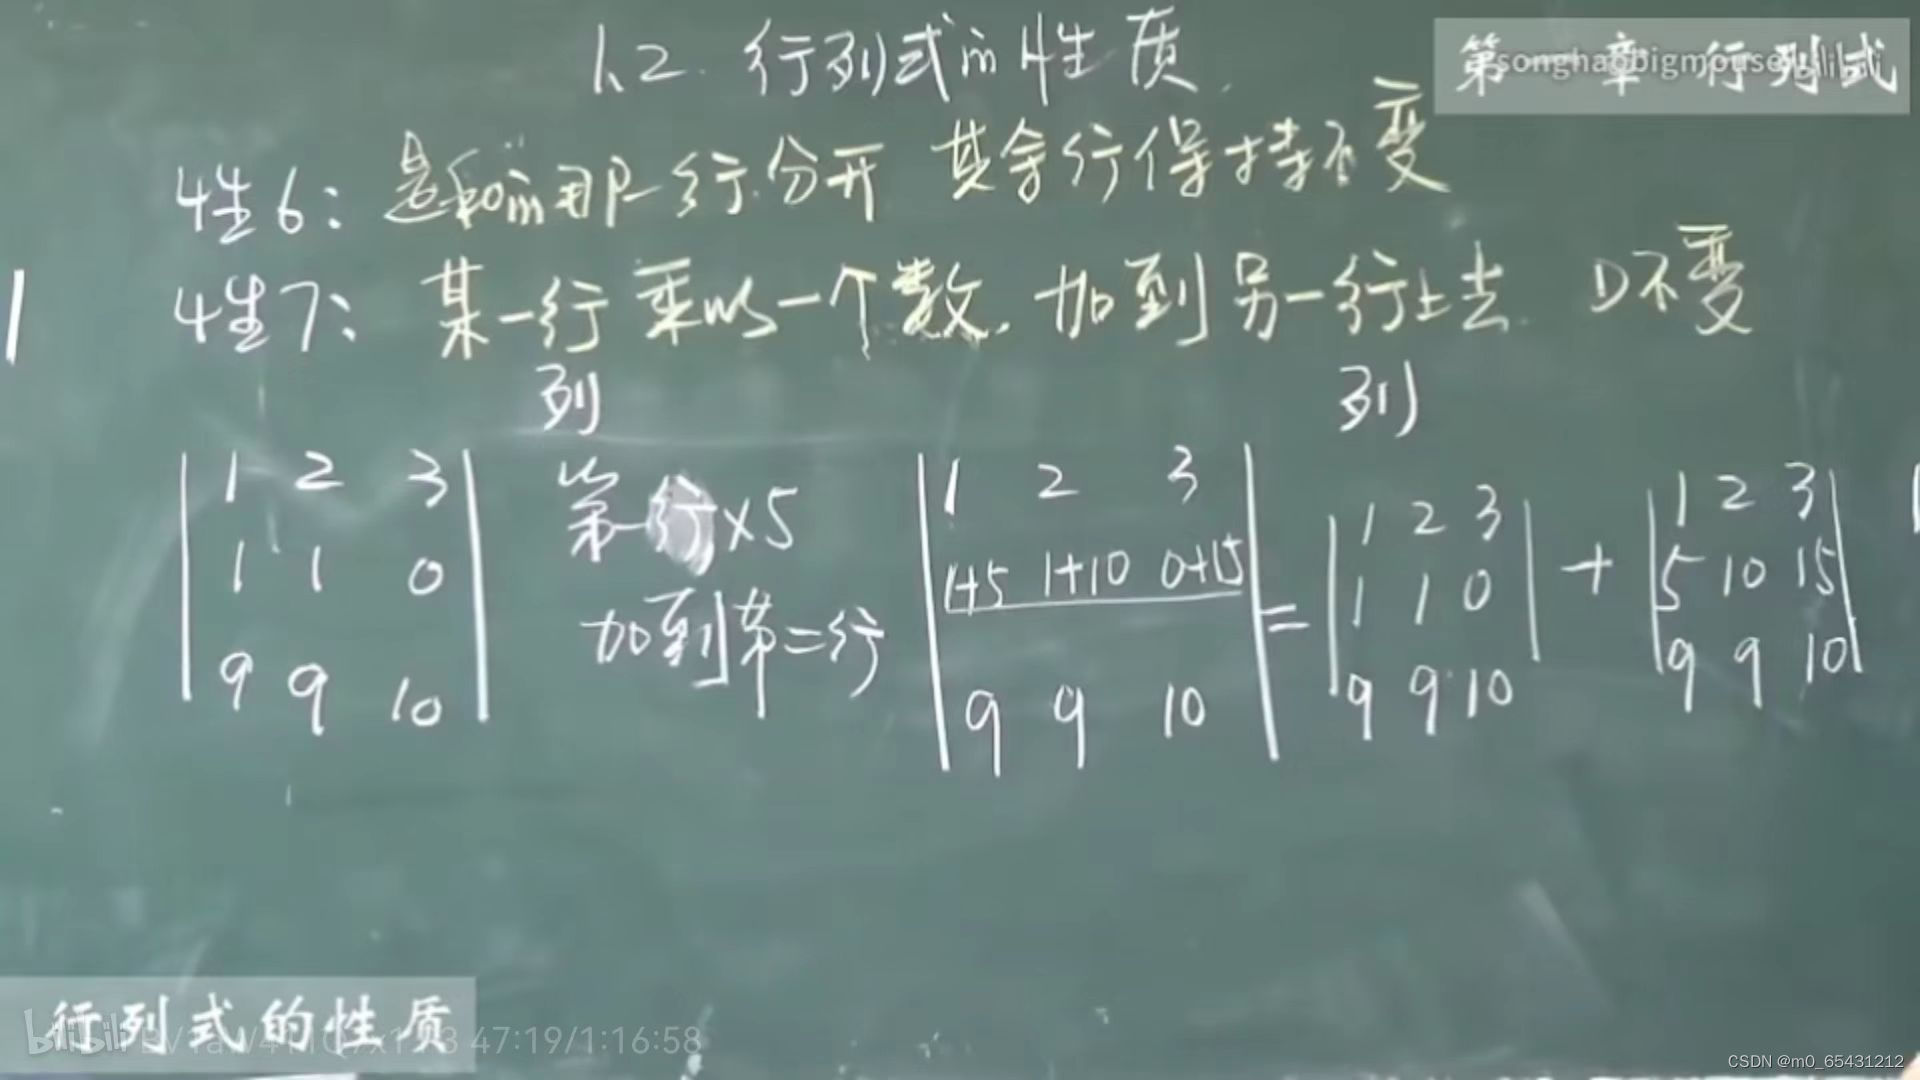 1.2. 行列式的性质.
第一章 行列式
songhaobigmouse bilibili
性6: 是和的那一行分开 其余行保持不变
性7: 某一行乘以一个数, 加到另一行上去. D不变
列 列
| 1 2 3 |
| 1 1 0 |
| 9 9 10 |
第一行×5
加到第二行
| 1 2 3 |
| 1+5 1+10 0+15 |
| 9 9 10 |
=
| 1 2 3 |
| 1 1 0 |
| 9 9 10 |
+
| 1 2 3 |
| 5 10 15 |
| 9 9 10 |
行列式的性质
bilibili 47:19/1:16:58
CSDN @m0_65431212